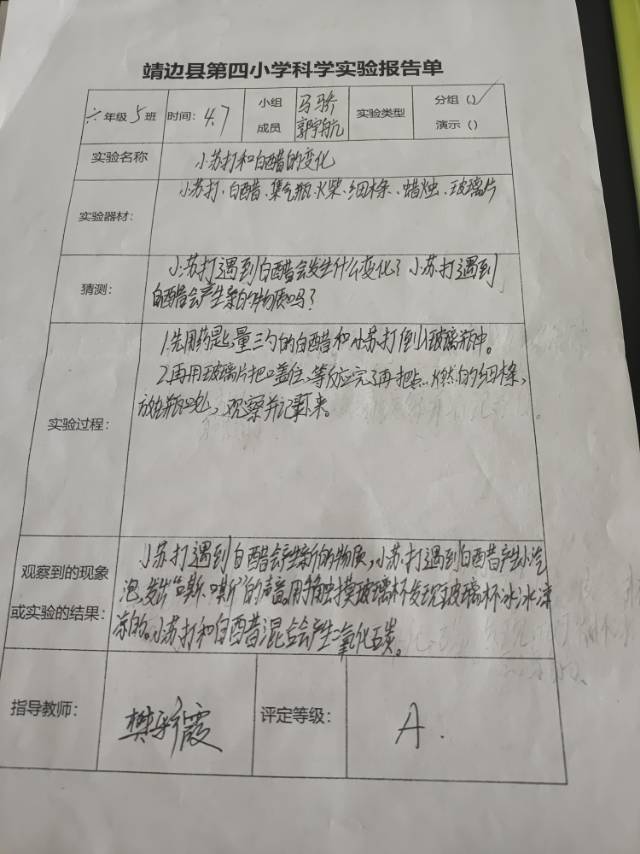 靖边县第四小学科学实验报告单
六年级5班 时间: 4.7 小组成员 马骄 郭宇航 实验类型 分组(✓) 演示()
实验名称 小苏打和白醋的变化
实验器材: 小苏打、白醋、集气瓶、火柴、细木条、蜡烛、玻璃片
猜测: 小苏打遇到白醋会发生什么变化?小苏打遇到
白醋会产生新的物质吗?
实验过程:
1.先用药匙量三勺的白醋和小苏打倒入玻璃瓶中。
2.再用玻璃片把口盖住,等反应完了再把点火燃的细木条,
放到瓶口处,观察并记录下来。
观察到的现象
或实验的结果:
小苏打遇到白醋会产生新的物质,小苏打遇到白醋产生小汽
泡,发出“嘶、嘶”的声音。用手触摸玻璃杯发现玻璃杯冰冰凉
凉的。小苏打和白醋混合会产生二氧化碳。
指导教师: 樊彩霞 评定等级: A.